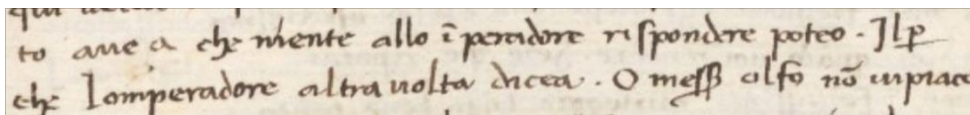 to avea che niente allo īperadore rispondere poteo. Il ꝑ
che lomperadore altra volta dicea. O mess̄ alfō nō vi piace